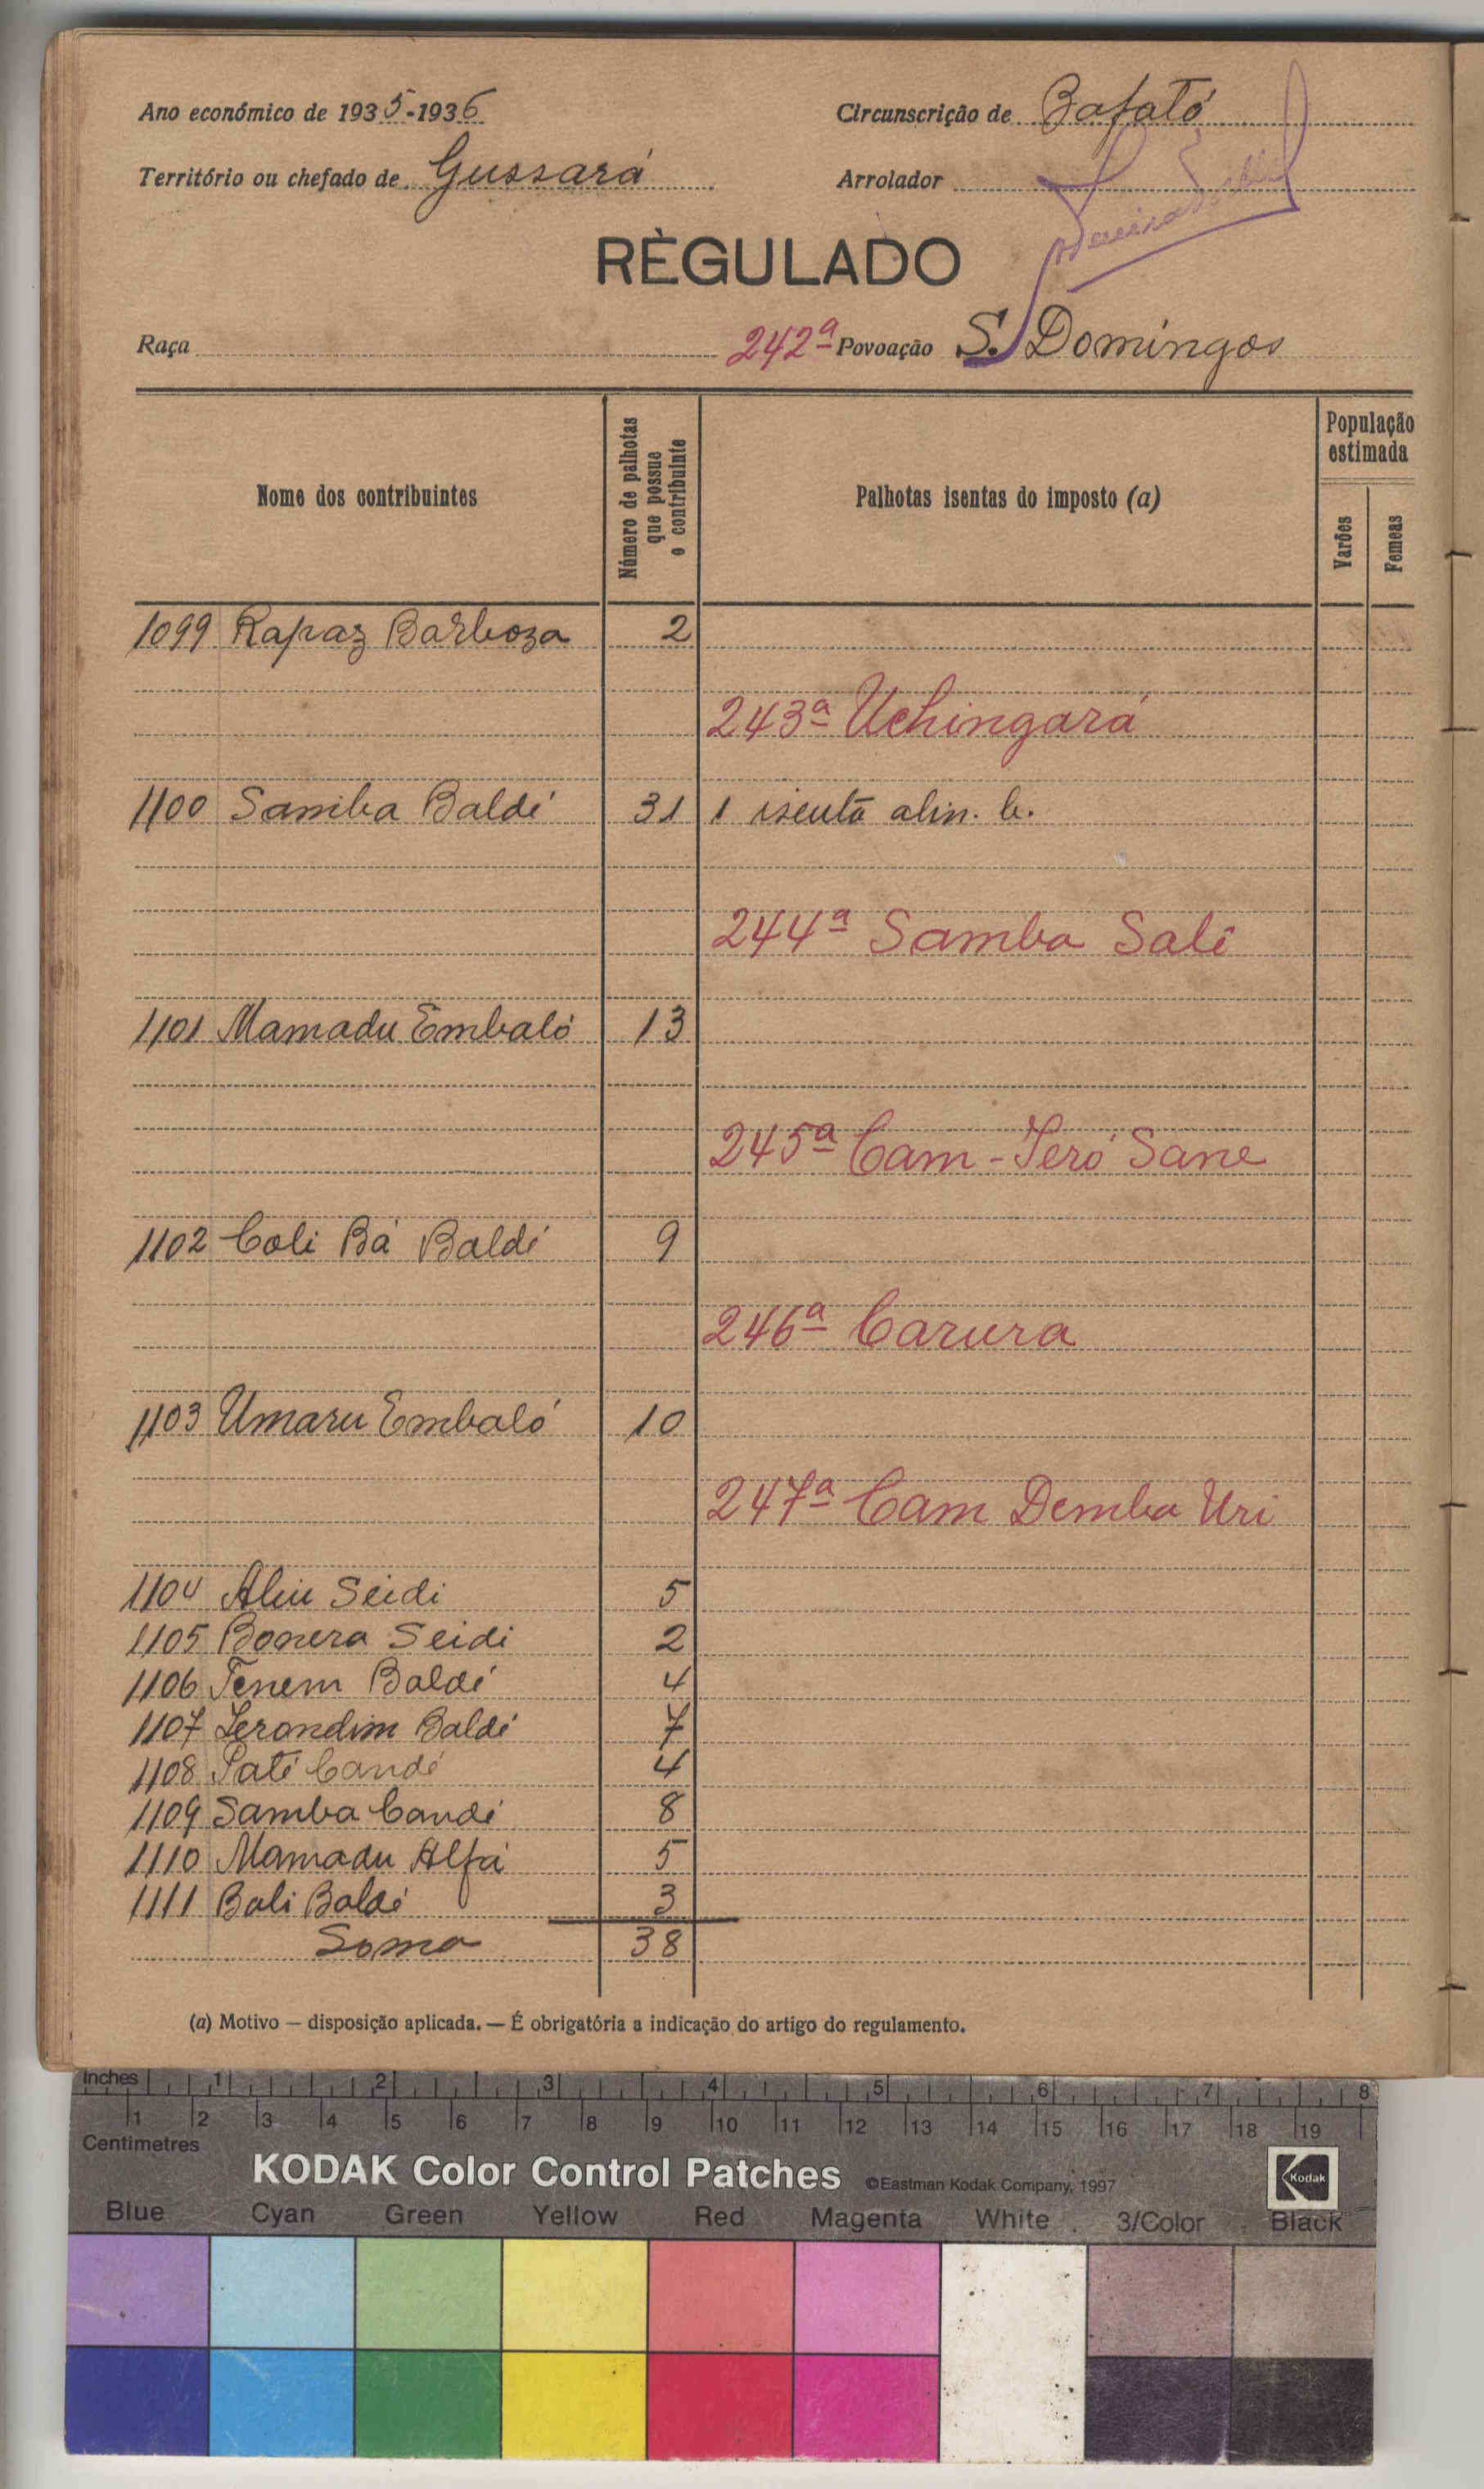 Ano económico de 1935-1936
Circunscrição de Bafatá
Território ou chefado de Gussará
Arrolador
RÈGULADO
Raça
242ª Povoação S. Domingos
Nome dos contribuintes
Número de palhotas que possue o contribuinte
Palhotas isentas do imposto (a)
População estimada
Varões
Femeas
1099 Rapaz Barboza 2
243ª Uchingará
1100 Samba Baldé 31 1 isenta alin. b.
244ª Samba Sali
1101 Mamadu Embaló 13
245ª Cam-Seró Sane
1102 Coli Bá Baldé 9
246ª Carura
1103 Umaru Embaló 10
247ª Cam Demba Uri
1104 Aliu Seidi 5
1105 Bonera Seidi 2
1106 Tenem Baldé 4
1107 Serandim Baldé 7
1108 Paté Candé 4
1109 Samba Candé 8
1110 Mamadu Alfá 5
1111 Bali Baldé 3
Soma 38
(a) Motivo — disposição aplicada. — É obrigatória a indicação do artigo do regulamento.
Inches 1 2 3 4 5 6 7 8
1 2 3 4 5 6 7 8 9 10 11 12 13 14 15 16 17 18 19
Centimetres
KODAK Color Control Patches ©Eastman Kodak Company, 1997 Kodak
Blue Cyan Green Yellow Red Magenta White 3/Color Black